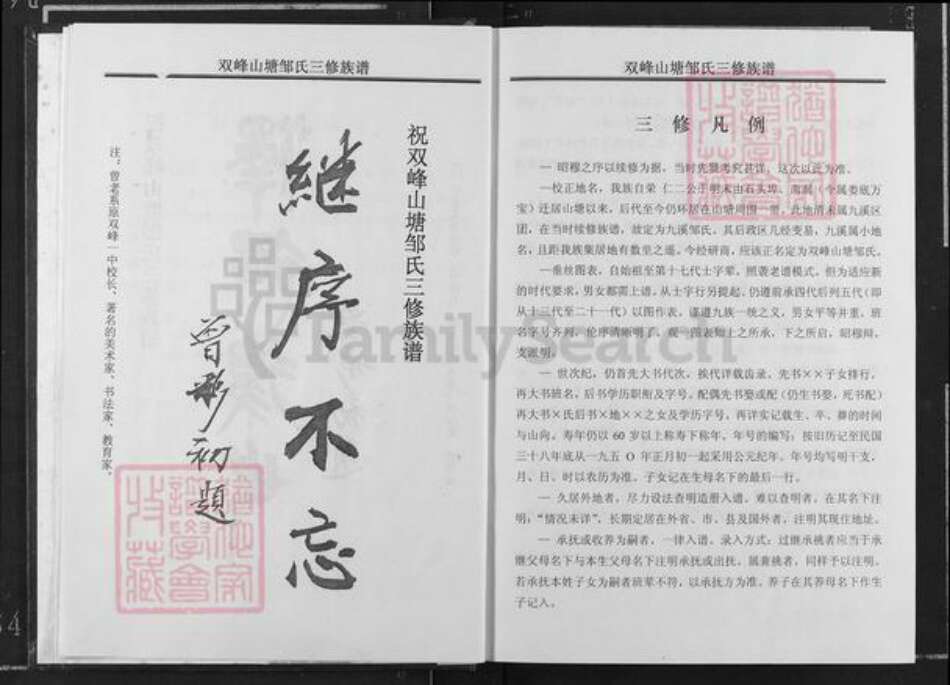 双峰山塘邹氏三修族谱
祝双峰山塘邹氏三修族谱
继序不忘
曾彩初题
注：曾老系原双峰一中校长、著名的美术家、书法家、教育家。
双峰山塘邹氏三修族谱
三修凡例
一 昭穆之序以续修为据，当时先贤考究甚详，这次以此为准。
一校正地名，我族自荣（二公于明末由石头埠、南冲（今属娄底万
宝）迁居山塘以来，后代至今仍环居在山塘周围一带，此地清末属九溪区
团，在当时续修族谱，故定为九溪邹氏。其后政区几经变易，九溪属小地
名，且距我族聚居地有数里之遥。今经研商，应该正名定为双峰山塘邹氏。
一垂丝图表，自始祖至第十七代士字辈，照袭老谱模式，但为适应新
的时代要求，男女都需上谱，从士字行另提起，仍遵前承四代后列五代（即
从十三代至二十一代）以图作表，谨遵九族一统之义，男女平等并重，班
名字号齐列，伦序清晰明了，观一图表知上之所承，下之所启，昭穆辩，
支派明。
一 世次纪，仍首先大书代次，挨代详载齿录，先书××子女排行，
再大书班名，后书学历职衔及字号。配偶先书娶或配（仍生书娶，死书配）
再大书×氏后书×地××之女及学历字号，再详实记载生、卒、葬的时间
与山向。寿年仍以 60 岁以上称寿下称年，年号的编写：按旧历记至民国
三十八年底从一九五 O 年正月初一起采用公元纪年。年号均写明干支，
月、日、时以农历为准。子女记在生母名下的最后一行。
一 久居外地者，尽力设法查明造册入谱。难以查明者，在其名下注
明：“情况未详”，长期定居在外省、市、县及国外者，注明其现住地址。
一 承抚或收养为嗣者，一律入谱。录入方式：过继承桃者应当于承
继父母名下与本生父母名下注明承抚或出抚。属兼桃者，同样予以注明。
若承抚本姓子女为嗣者班辈不符，以承抚方为准。养子在其养母名下作生
子记入。
FamilySearch